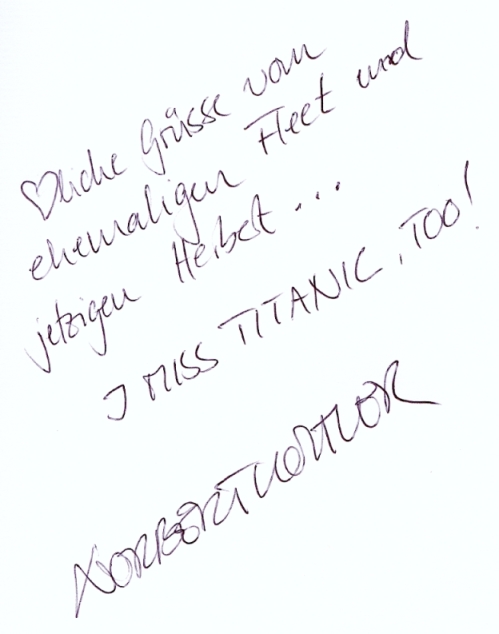 ♡liche Grüsse vom
ehemaligen Fleet und
jetzigen Herbert ...
I MISS TITANIC, TOO!
NORBERT KOHLER